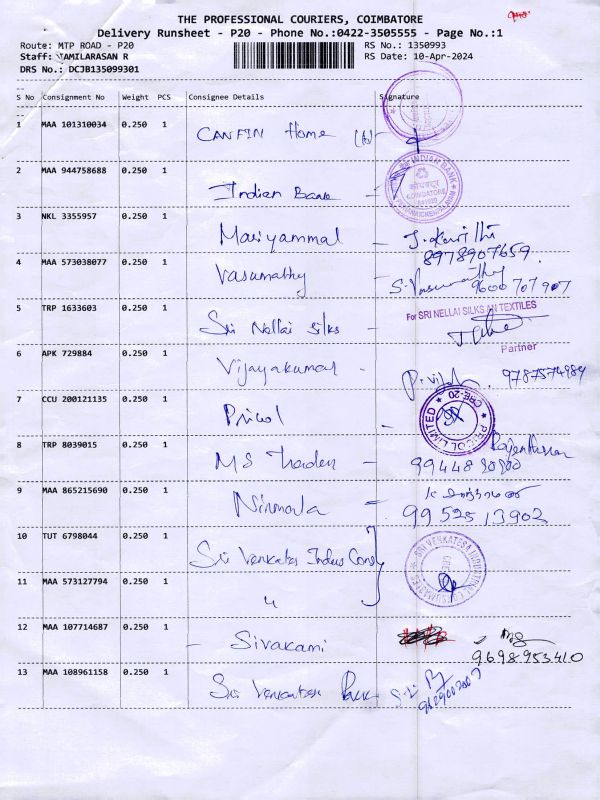 THE PROFESSIONAL COURIERS, COIMBATORE
Delivery Runsheet - P20 - Phone No.:0422-3505555 - Page No.:1
Route: MTP ROAD - P20
RS No.: 1350993
Staff: TAMILARASAN R
RS Date: 10-Apr-2024
DRS No.: DCJB135099301
S No Consignment No Weight PCS Consignee Details Signature
1 MAA 101310034 0.250 1 CANFIN Home
2 MAA 944758688 0.250 1 Indian Bank
INDIAN BANK
COIMBATORE
3 NKL 3355957 0.250 1 Mariyammal - J. Kavitha
8978907659
4 MAA 573038077 0.250 1 Vasumathy - S. Vasumathy
9600707907
5 TRP 1633603 0.250 1 Sri Nellai Silks -
For SRI NELLAI SILKS AN TEXTILES
Partner
6 APK 729884 0.250 1 Vijayakumar - 9787574989
7 CCU 200121135 0.250 1 Pricol
PRICOL LIMITED CBE-20
8 TRP 8039015 0.250 1 MS Traders -
9 MAA 865215690 0.250 1 Nirmala
9952513902
10 TUT 6798044 0.250 1 Sri Venkates Indus Consy
SRI VENKATESA INDUSTRIAL
11 MAA 573127794 0.250 1 "
12 MAA 107714687 0.250 1 - Sivakami
9698953410
13 MAA 108961158 0.250 1 Sri Venkates